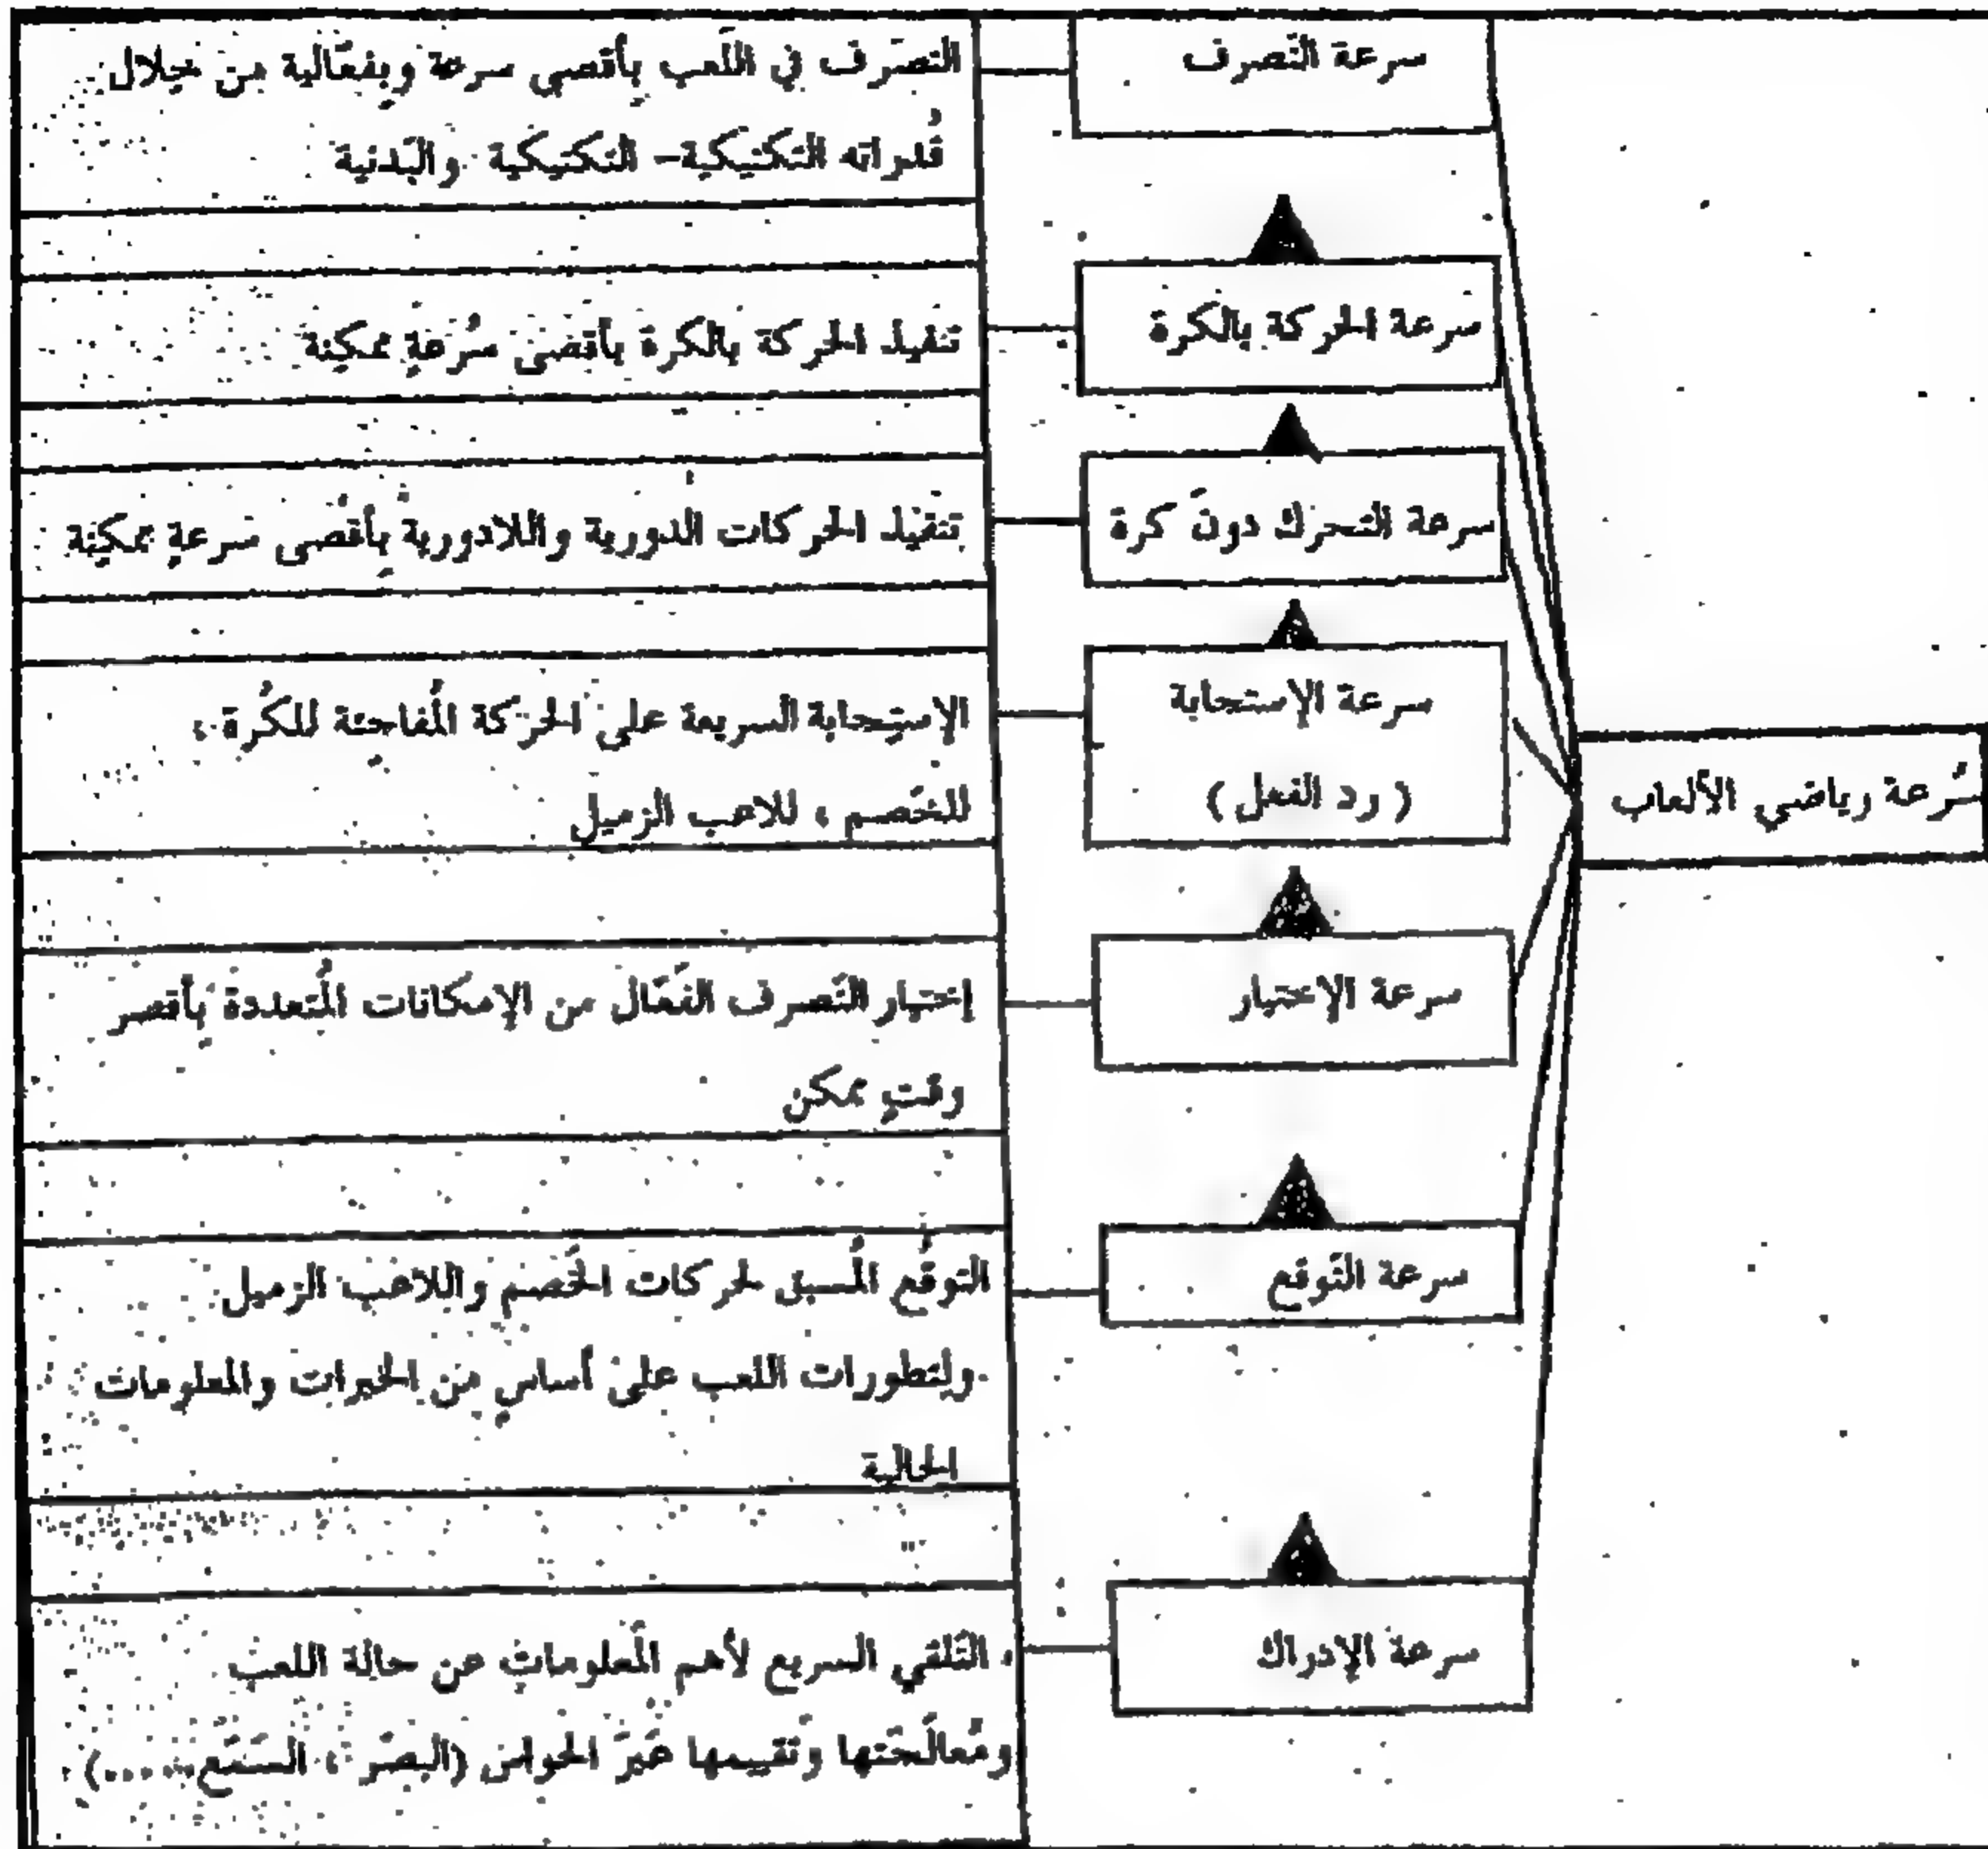 سرعة التّصرف
التصَرف في اللَعب بأقصى سرعة وبفعّالية من خلال
قُدراته التكنيكية- التكتيكية والبَدنية
سرعة الحركة بالكرة
تنفيذ الحركة بالكرة بأقصى سُرعةٍ ممكنة
سرعة التحرك دونَ كرة
تنفيذ الحركات الدورية واللادورية بأقصى سرعةٍ ممكنة
سرعة الإستجابة
( رد الفعل )
الإستِجابة السريعة على الحركة المُفاجئة للكُرة ،
للخَصم ، للاعب الزميل
سُرعة رياضي الألعاب
سرعة الإختيار
إختيار التّصرف الفعّال من الإمكانات المُتعددة بأقصر
وقتٍ ممكن
سرعة التّوقع
التوقُع المُسبق لحركات الخَصم واللاعب الزميل
ولتطورات اللعب على أساسٍ من الخبرات والمعلومات
الحالية
سرعة الإدراك
التّلقي السريع لأهم المَعلوماتِ عن حالة اللعب
ومُعالَجتها وتَقييمها عَبرَ الحواس (البصَر ، السَمَع،....)